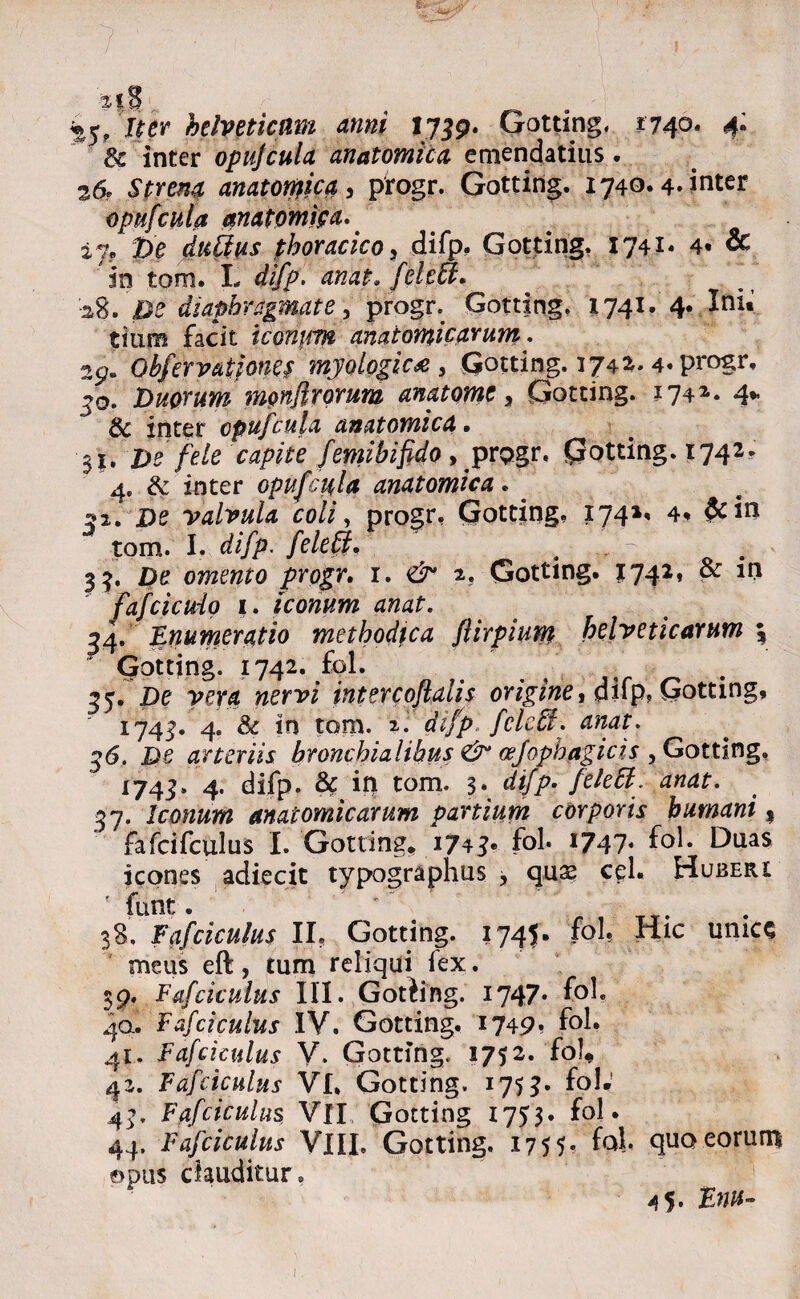 218
25. Iter helveticum anni 1739. Gotting. 1740. 4.
& inter opuscula anatomica emendatius.
26. Strena anatomica, progr. Gotting. 1740. 4. inter
opuscula anatomica.
27. De ductus thoracico, disp. Gotting. 1741. 4. &
in tom. I. disp. anat. select.
28. De diaphragmate, progr. Gotting. 1741. 4. Ini-
tium facit iconum anatomicarum.
29. Observationes myologicæ, Gotting. 1742. 4. progr.
30. Duorum monstrorum anatome, Gotting. 1742. 4.
& inter opuscula anatomica.
31. De fele capite semibifido, progr. Gotting. 1742.
4. & inter opuscula anatomica.
32. De valvula coli, progr. Gotting. 1742. 4. & in
tom. I. disp. select.
33. De omento progr. 1. & 2. Gotting. 1742, & in
fasciculo 1. iconum anat.
34. Enumeratio methodica stirpium helveticarum;
Gotting. 1742. fol.
35. De vera nervi intercostalis origine, disp. Gotting.
1743. 4. & in tom. 2. disp. select. anat.
36. De arteriis bronchialibus & œsophagicis, Gotting.
1743. 4. disp. & in tom. 3. disp. select. anat.
37. Iconum anatomicarum partium corporis humani,
fascisculus I. Gotting. 1743. fol. 1747. fol. Duas
icones adiecit typographus, quæ cel. Huberi
sunt.
38. Fasciculus II. Gotting. 1745. fol. Hic unice
meus est, tum reliqui sex.
39. Fasciculus III. Gotting. 1747. fol.
40. Fasciculus IV. Gotting. 1749. fol.
41. Fasciculus V. Gotting. 1752. fol.
42. Fasciculus VI. Gotting. 1753. fol.
43. Fasciculus VII. Gotting 1753. fol.
44. Fasciculus VIII. Gotting. 1755. fol. quo eorum
opus clauditur.
45. Enu-